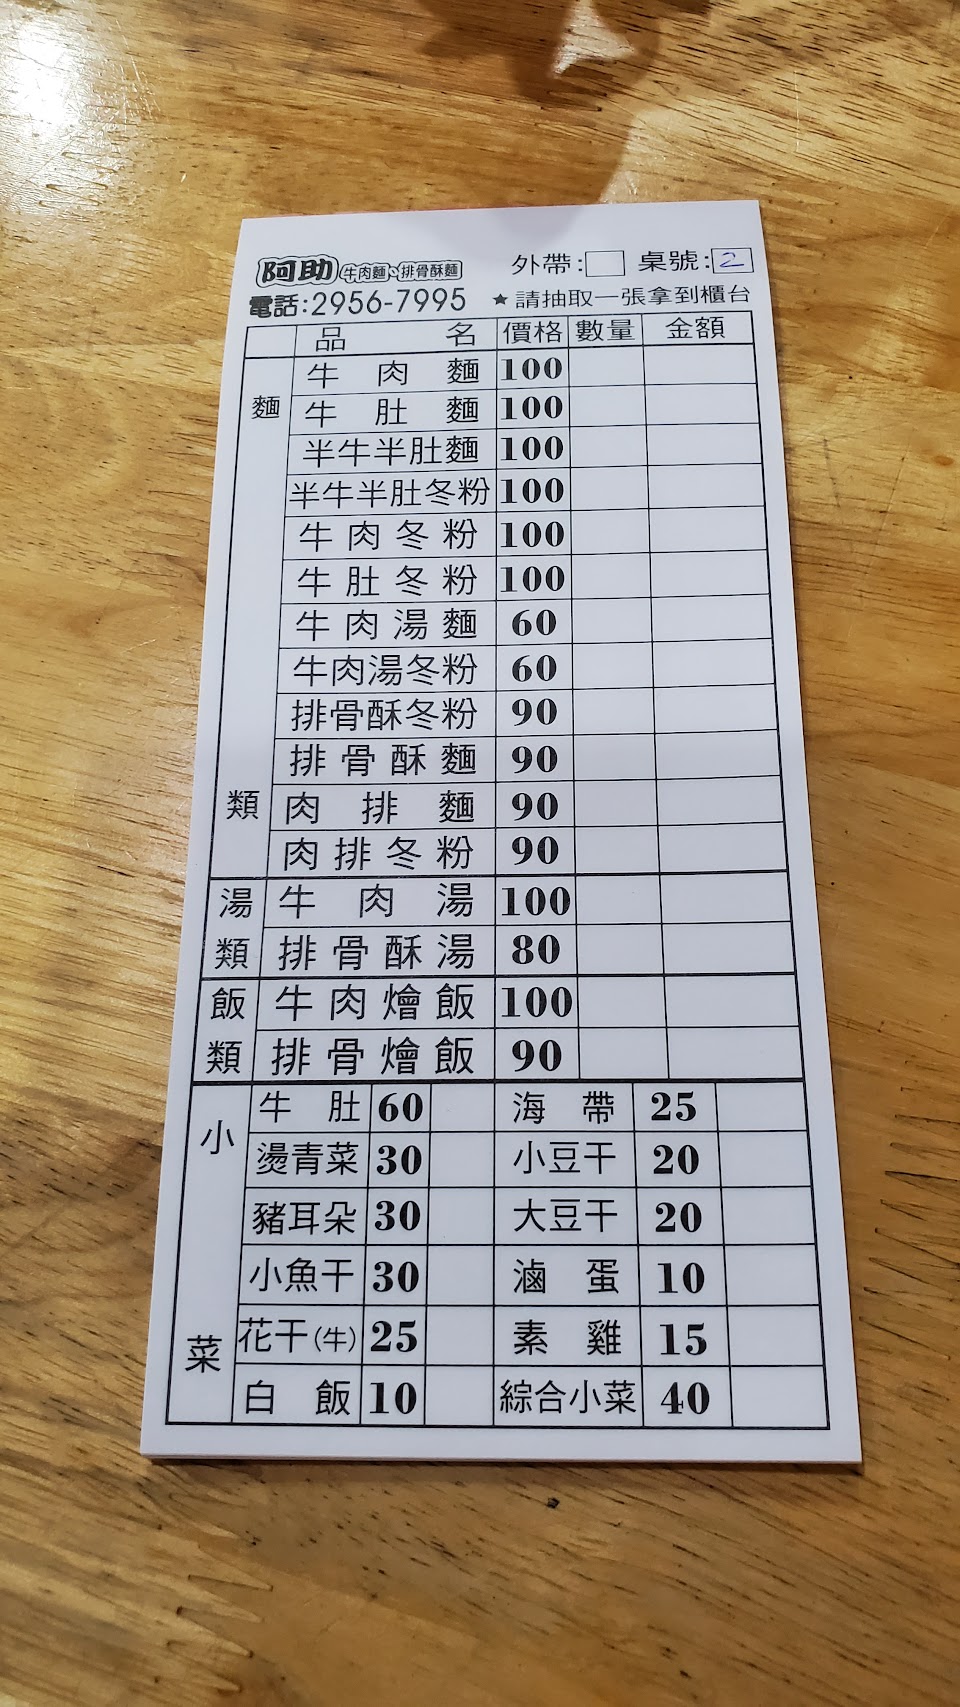 阿助 牛肉麵、排骨酥麵 外帶: 桌號: 2
電話:2956-7995 ★請抽取一張拿到櫃台
品名 價格 數量 金額
麵類
牛肉麵 100
牛肚麵 100
半牛半肚麵 100
半牛半肚冬粉 100
牛肉冬粉 100
牛肚冬粉 100
牛肉湯麵 60
牛肉湯冬粉 60
排骨酥冬粉 90
排骨酥麵 90
肉排麵 90
肉排冬粉 90
湯類
牛肉湯 100
排骨酥湯 80
飯類
牛肉燴飯 100
排骨燴飯 90
小菜
牛肚 60 海帶 25
燙青菜 30 小豆干 20
豬耳朵 30 大豆干 20
小魚干 30 滷蛋 10
花干(牛) 25 素雞 15
白飯 10 綜合小菜 40